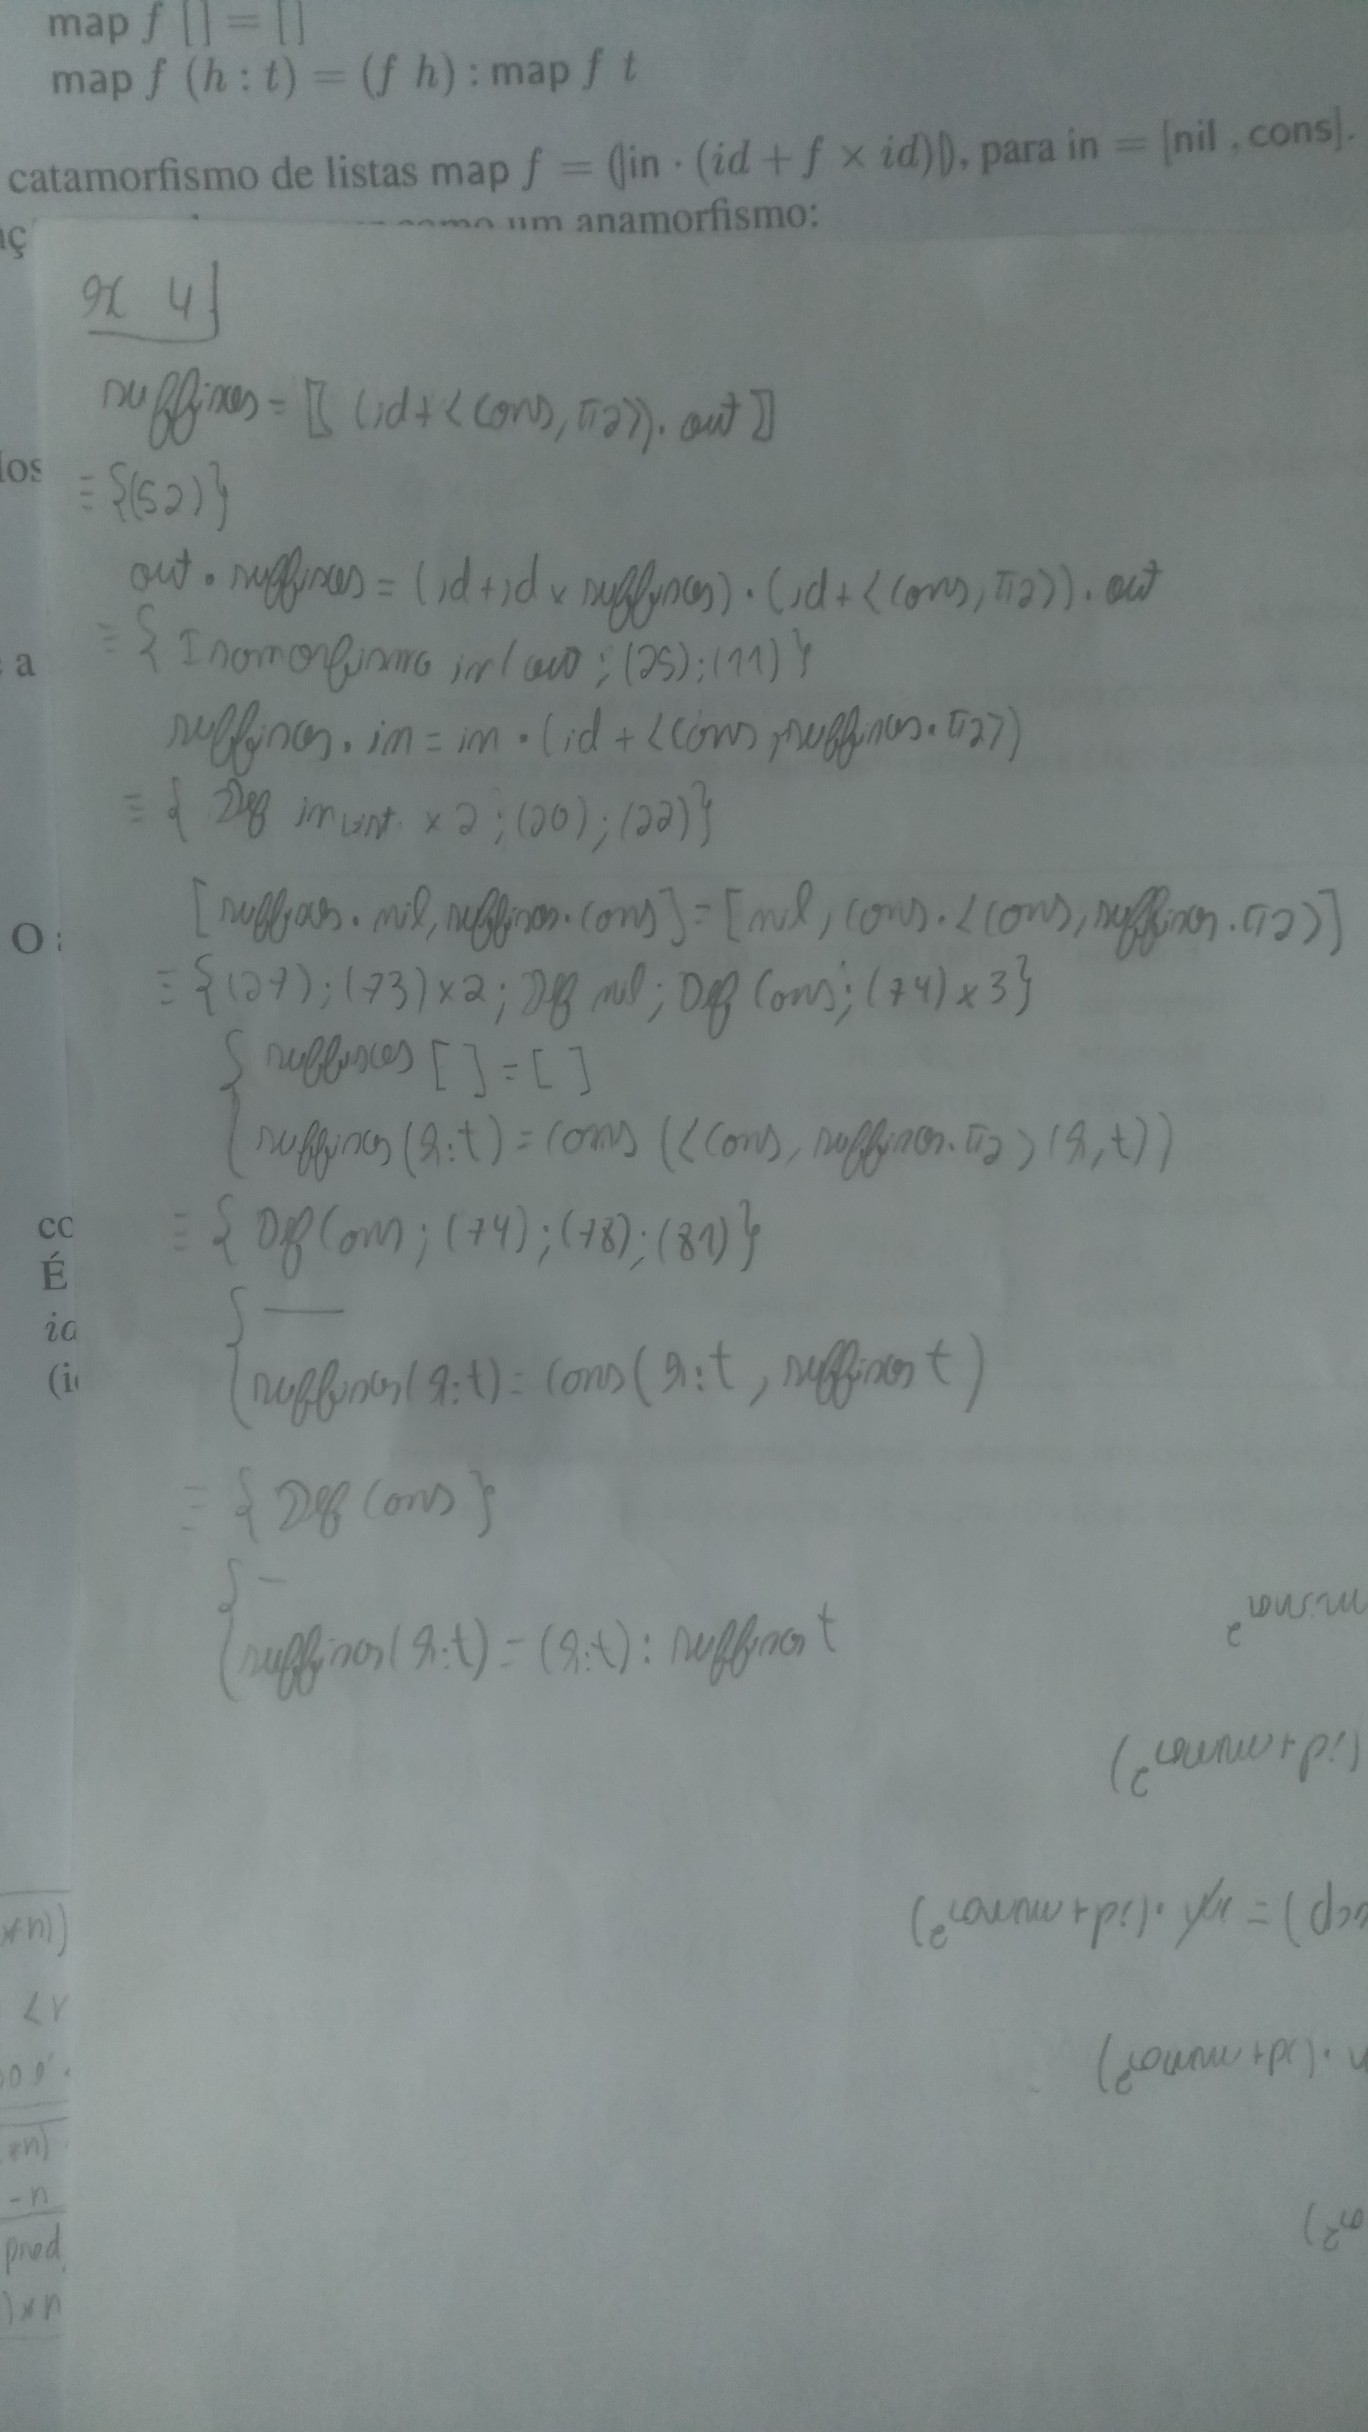 map f [] = []
map f (h : t) = (f h) : map f t
catamorfismo de listas map f = (|in · (id + f × id)|), para in = [nil , cons].
um anamorfismo:
ex 4
suffixes = [( (id + <cons, π2>) . out )]
≡ {(52)}
out . suffixes = (id + id × suffixes) . (id + <cons, π2>) . out
≡ { Isomorfismo in/out ; (25) ; (11) }
suffixes . in = in . (id + <cons, suffixes . π2>)
≡ { Def in × 2 ; (20) ; (22) }
[suffixes . nil, suffixes . cons] = [nil, cons . <cons, suffixes . π2>]
≡ {(27) ; (73) × 2 ; Def nil ; Def cons ; (74) × 3}
{ suffixes [ ] = [ ]
{ suffixes (h:t) = cons (<cons, suffixes . π2> (h,t))
≡ { Def cons ; (74) ; (78) ; (81) }
{ —
{ suffixes (h:t) = cons (h:t , suffixes t)
≡ { Def cons }
{ —
{ suffixes (h:t) = (h:t) : suffixes t
los
a
O :
co
É
id
(id
(id + minor2)
= . (id + minor2)
. (id + minor2)
pred